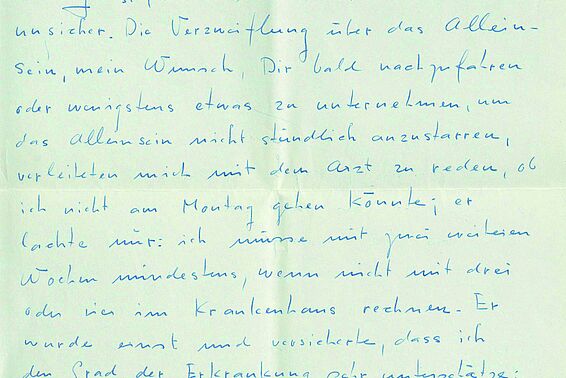 unsicher. Die Verzweiflung über das Allein-
sein, mein Wunsch, Dir bald nachzufahren
oder wenigstens etwas zu unternehmen, um
das Alleinsein nicht stündlich anzustarren,
verleiteten mich mit dem Arzt zu reden, ob
ich nicht am Montag gehen könnte; er
lachte nur: ich müsse mit zwei weiteren
Wochen mindestens, wenn nicht mit drei
oder vier im Krankenhaus rechnen. Er
wurde ernst und versicherte, dass ich
den Grad der Erkrankung sehr unterschätze: